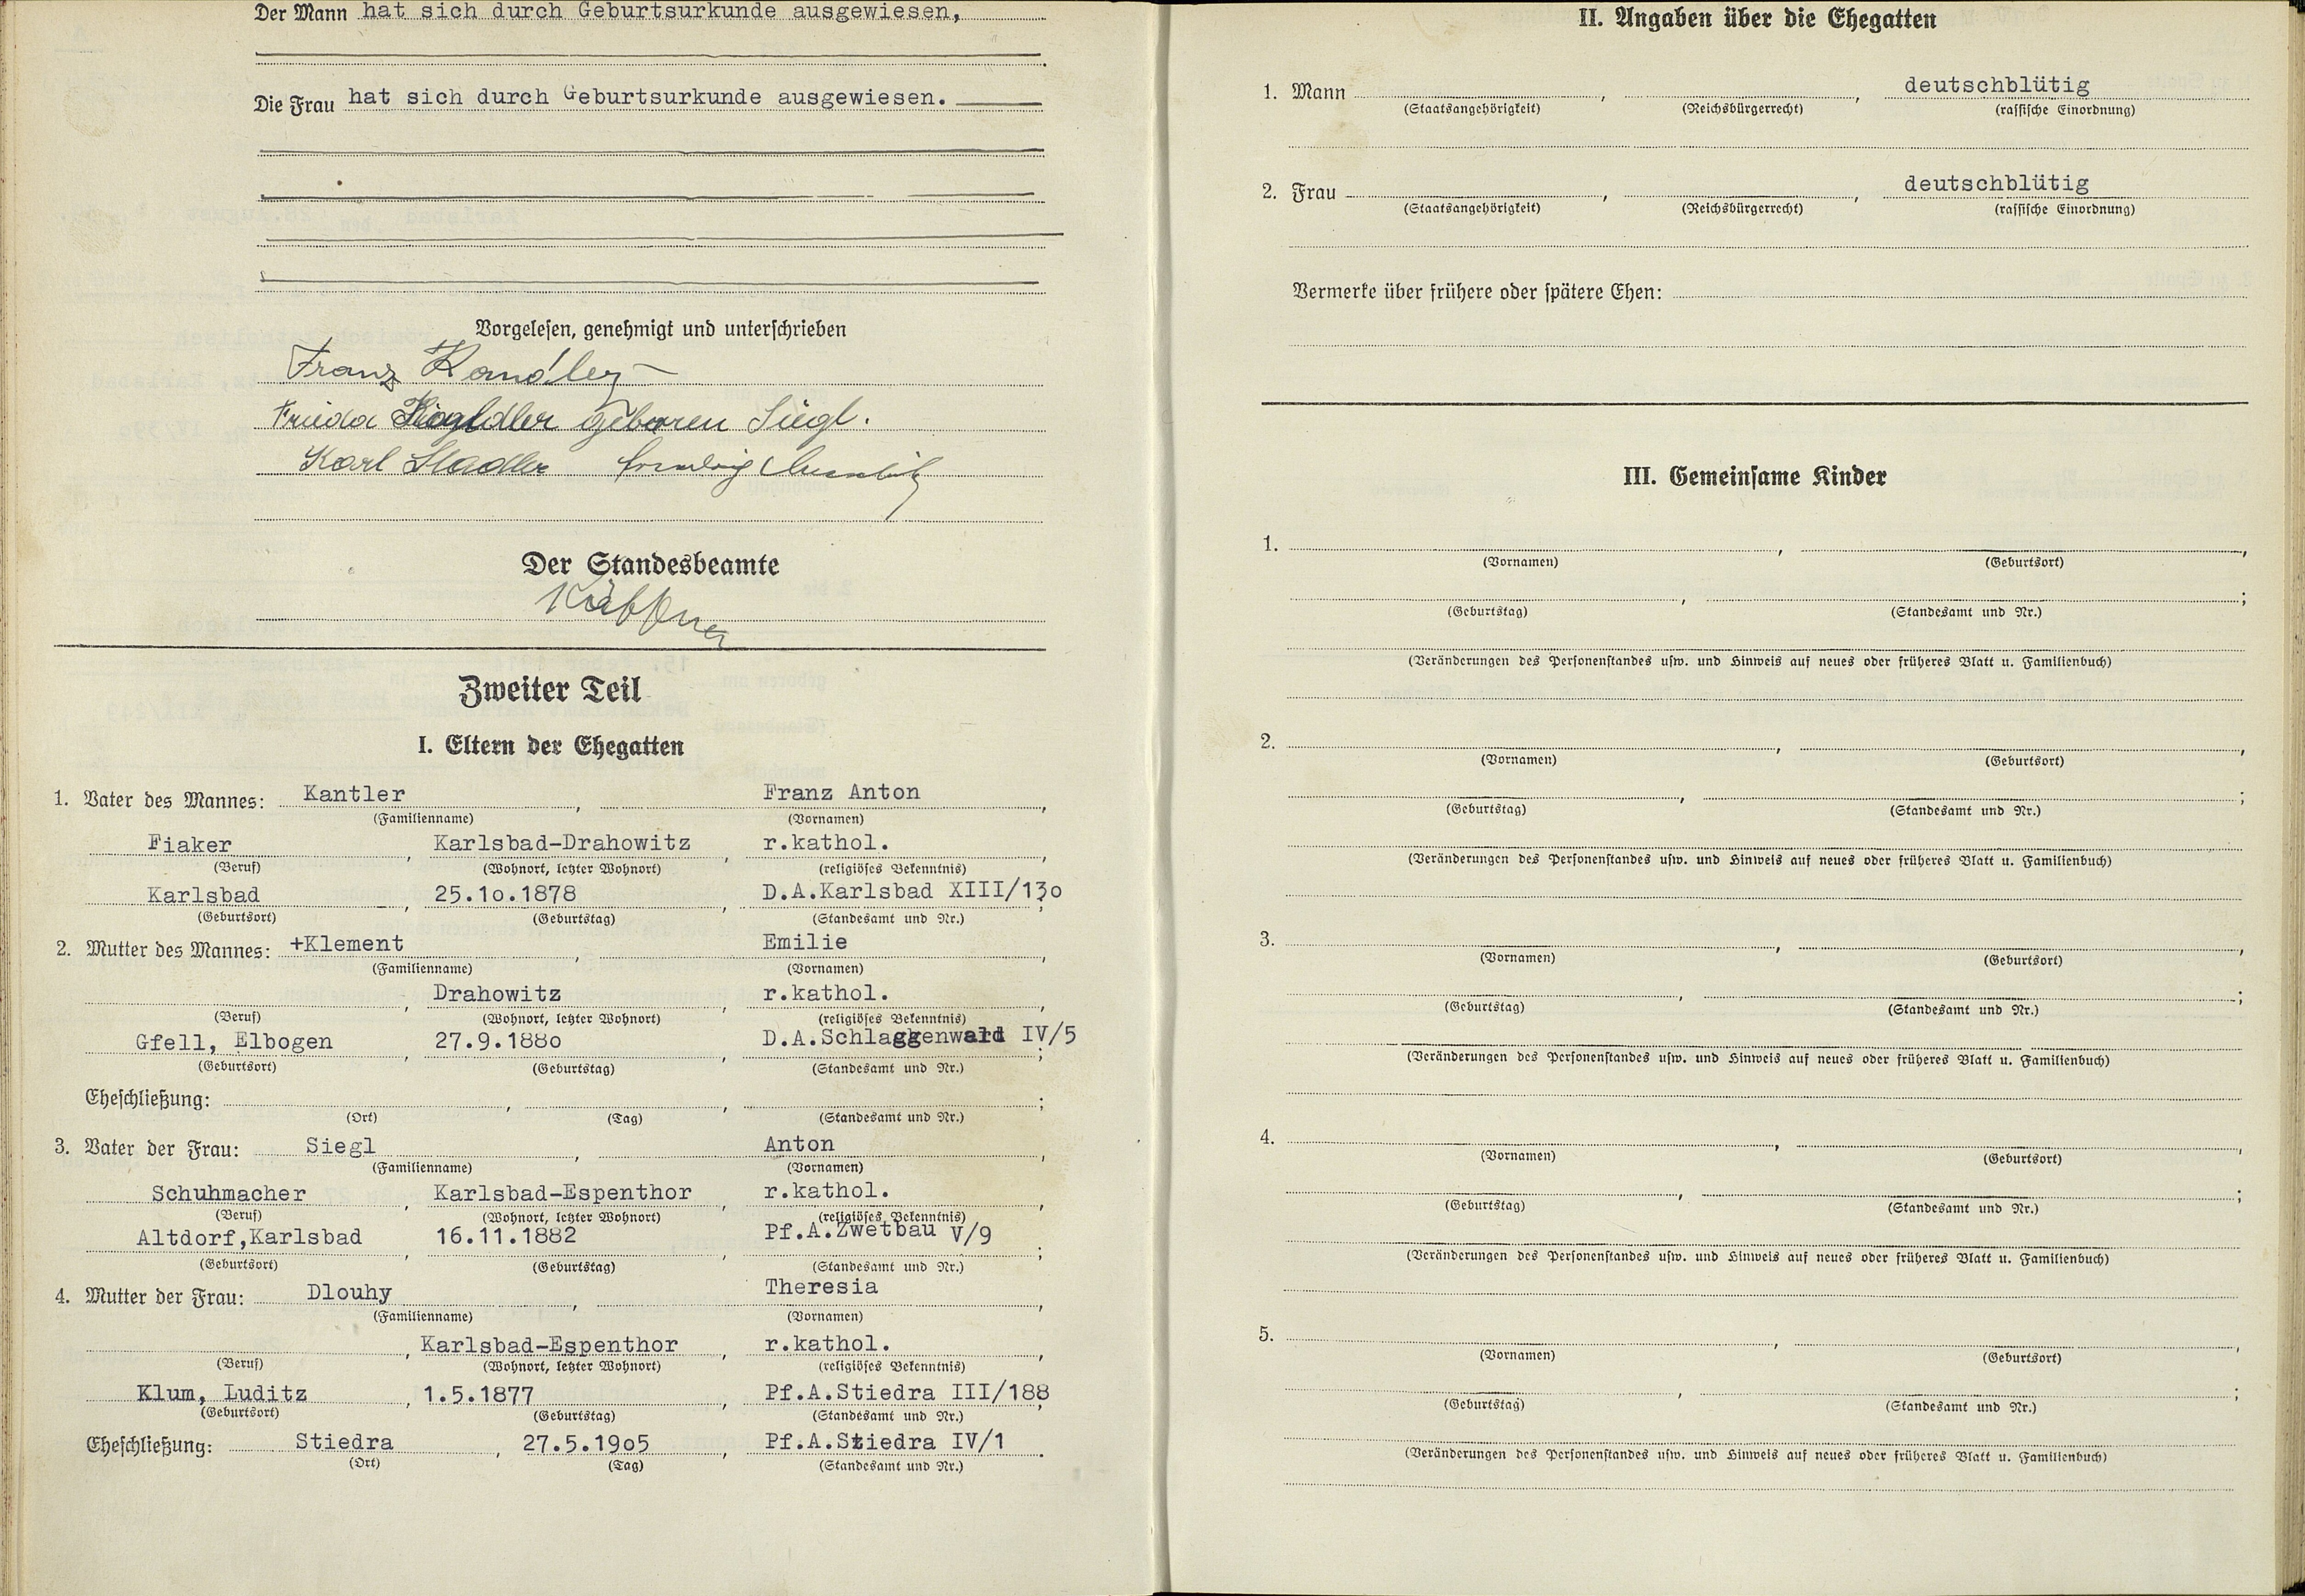 Der Mann hat sich durch Geburtsurkunde ausgewiesen,
Die Frau hat sich durch Geburtsurkunde ausgewiesen.
Vorgelesen, genehmigt und unterschrieben
Franz Kandler
Frieda Kandler geboren Siegl.
Karl Stadler
Der Standesbeamte
Zweiter Teil
I. Eltern der Ehegatten
1. Vater des Mannes: Kantler , Franz Anton ,
(Familienname) (Vornamen)
Fiaker , Karlsbad-Drahowitz , r.kathol. ,
(Beruf) (Wohnort, letzter Wohnort) (religiöses Bekenntnis)
Karlsbad , 25.10.1878 , D.A.Karlsbad XIII/130 ;
(Geburtsort) (Geburtstag) (Standesamt und Nr.)
2. Mutter des Mannes: +Klement , Emilie ,
(Familienname) (Vornamen)
, Drahowitz , r.kathol. ,
(Beruf) (Wohnort, letzter Wohnort) (religiöses Bekenntnis)
Gfell, Elbogen , 27.9.1880 , D.A.Schlaggenwald IV/5 ;
(Geburtsort) (Geburtstag) (Standesamt und Nr.)
Eheschließung: , , ;
(Ort) (Tag) (Standesamt und Nr.)
3. Vater der Frau: Siegl , Anton ,
(Familienname) (Vornamen)
Schuhmacher , Karlsbad-Espenthor , r.kathol. ,
(Beruf) (Wohnort, letzter Wohnort) (religiöses Bekenntnis)
Altdorf,Karlsbad , 16.11.1882 , Pf.A.Zwetbau V/9 ;
(Geburtsort) (Geburtstag) (Standesamt und Nr.)
4. Mutter der Frau: Dlouhy , Theresia ,
(Familienname) (Vornamen)
, Karlsbad-Espenthor , r.kathol. ,
(Beruf) (Wohnort, letzter Wohnort) (religiöses Bekenntnis)
Klum, Luditz , 1.5.1877 , Pf.A.Stiedra III/188 ;
(Geburtsort) (Geburtstag) (Standesamt und Nr.)
Eheschließung: Stiedra , 27.5.1905 , Pf.A.Stiedra IV/1 .
(Ort) (Tag) (Standesamt und Nr.)
II. Angaben über die Ehegatten
1. Mann , , deutschblütig
(Staatsangehörigkeit) (Reichsbürgerrecht) (rassische Einordnung)
2. Frau , , deutschblütig
(Staatsangehörigkeit) (Reichsbürgerrecht) (rassische Einordnung)
Vermerke über frühere oder spätere Ehen:
III. Gemeinsame Kinder
1. , ,
(Vornamen) (Geburtsort)
, ;
(Geburtstag) (Standesamt und Nr.)
(Veränderungen des Personenstandes usw. und Hinweis auf neues oder früheres Blatt u. Familienbuch)
2. , ,
(Vornamen) (Geburtsort)
, ;
(Geburtstag) (Standesamt und Nr.)
(Veränderungen des Personenstandes usw. und Hinweis auf neues oder früheres Blatt u. Familienbuch)
3. , ,
(Vornamen) (Geburtsort)
, ;
(Geburtstag) (Standesamt und Nr.)
(Veränderungen des Personenstandes usw. und Hinweis auf neues oder früheres Blatt u. Familienbuch)
4. , ,
(Vornamen) (Geburtsort)
, ;
(Geburtstag) (Standesamt und Nr.)
(Veränderungen des Personenstandes usw. und Hinweis auf neues oder früheres Blatt u. Familienbuch)
5. , ,
(Vornamen) (Geburtsort)
, ;
(Geburtstag) (Standesamt und Nr.)
(Veränderungen des Personenstandes usw. und Hinweis auf neues oder früheres Blatt u. Familienbuch)